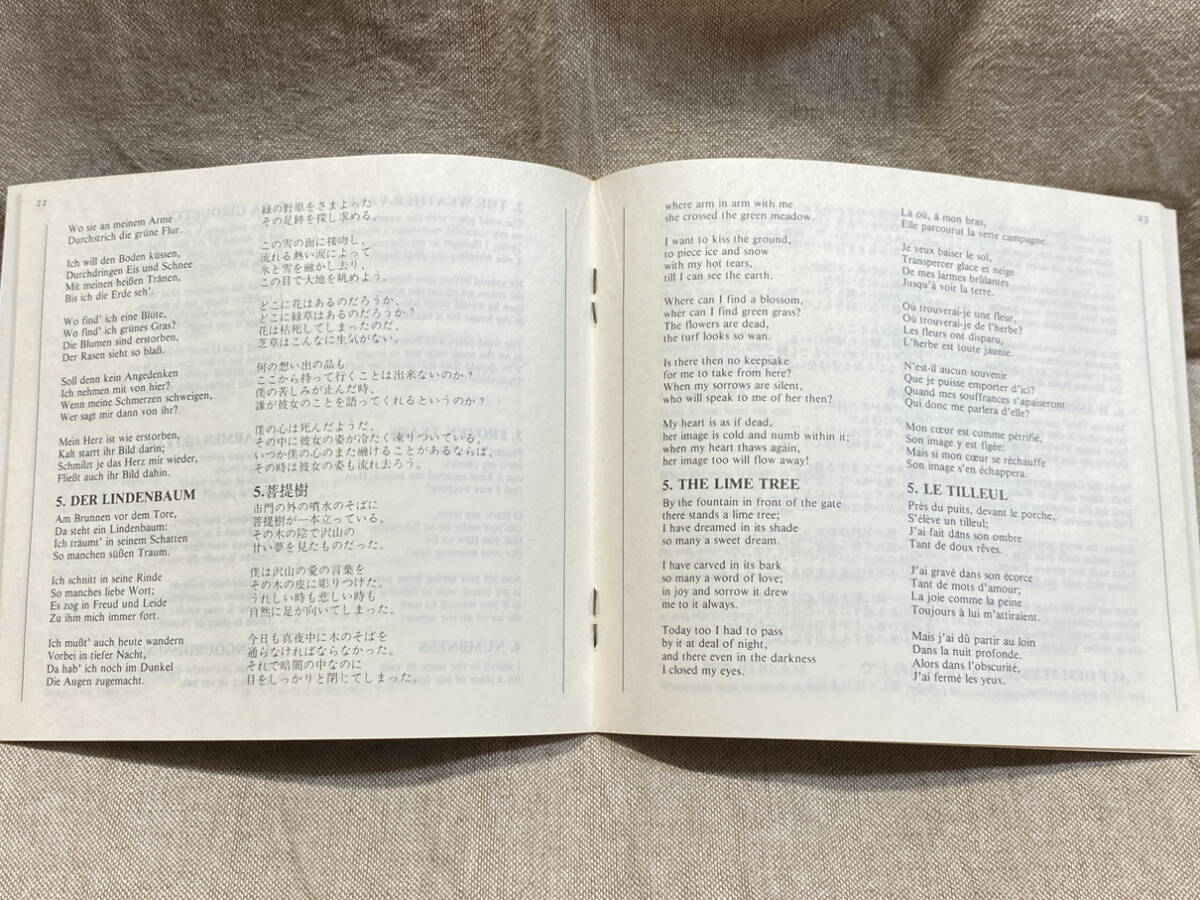 22
Wo sie an meinem Arme
Durchstrich die grüne Flur.
Ich will den Boden küssen,
Durchdringen Eis und Schnee
Mit meinen heißen Tränen,
Bis ich die Erde seh'.
Wo find' ich eine Blüte,
Wo find' ich grünes Gras?
Die Blumen sind erstorben,
Der Rasen sieht so blaß.
Soll denn kein Angedenken
Ich nehmen mit von hier?
Wenn meine Schmerzen schweigen,
Wer sagt mir dann von ihr?
Mein Herz ist wie erstorben,
Kalt starrt ihr Bild darin;
Schmilzt je das Herz mir wieder,
Fließt auch ihr Bild dahin.
5. DER LINDENBAUM
Am Brunnen vor dem Tore,
Da steht ein Lindenbaum:
Ich träumt' in seinem Schatten
So manchen süßen Traum.
Ich schnitt in seine Rinde
So manches liebe Wort;
Es zog in Freud und Leide
Zu ihm mich immer fort.
Ich mußt' auch heute wandern
Vorbei in tiefer Nacht,
Da hab' ich noch im Dunkel
Die Augen zugemacht.
緑の野原をさまよった
その足跡を探し求める。
この雪の面に接吻し、
流れる熱い涙によって
氷と雪を融かし去り、
この目で大地を眺めよう。
どこに花はあるのだろうか、
どこに緑草はあるのだろうか？
花は枯死してしまったのだ、
芝草はこんなに生気がない。
何の想い出の品も
ここから持って行くことは出来ないのか？
僕の苦しみが止んだ時、
誰が彼女のことを語ってくれるというのか？
僕の心は死んだようだ、
その中に彼女の姿が冷たく凍りついている。
いつか僕の心のまた融けることがあるならば、
その時は彼女の姿も流れ去ろう。
5.菩提樹
市門の外の噴水のそばに
菩提樹が一本立っている。
その木の陰で沢山の
甘い夢を見たものだった。
僕は沢山の愛の言葉を
その木の皮に彫りつけた。
うれしい時も悲しい時も
自然に足が向いてしまった。
今日も真夜中に木のそばを
通らなければならなかった。
それで暗闇の中なのに
目をしっかりと閉じてしまった。
where arm in arm with me
she crossed the green meadow.
I want to kiss the ground,
to piece ice and snow
with my hot tears,
till I can see the earth.
Where can I find a blossom,
wher can I find green grass?
The flowers are dead,
the turf looks so wan.
Is there then no keepsake
for me to take from here?
When my sorrows are silent,
who will speak to me of her then?
My heart is as if dead,
her image is cold and numb within it;
when my heart thaws again,
her image too will flow away!
5. THE LIME TREE
By the fountain in front of the gate
there stands a lime tree;
I have dreamed in its shade
so many a sweet dream.
I have carved in its bark
so many a word of love;
in joy and sorrow it drew
me to it always.
Today too I had to pass
by it at deal of night,
and there even in the darkness
I closed my eyes.
23
Là où, à mon bras,
Elle parcourut la verte campagne.
Je veux baiser le sol,
Transpercer glace et neige
De mes larmes brûlantes
Jusqu'à voir la terre.
Où trouverai-je une fleur,
Où trouverai-je de l'herbe?
Les fleurs ont disparu,
L'herbe est toute jaunie.
N'est-il aucun souvenir
Que je puisse emporter d'ici?
Quand mes souffrances s'apaiseront
Qui donc me parlera d'elle?
Mon cœur est comme pétrifié,
Son image y est figée:
Mais si mon cœur se réchauffe
Son image s'en échappera.
5. LE TILLEUL
Près du puits, devant le porche,
S'élève un tilleul;
J'ai fait dans son ombre
Tant de doux rêves.
J'ai gravé dans son écorce
Tant de mots d'amour;
La joie comme la peine
Toujours à lui m'attiraient.
Mais j'ai dû partir au loin
Dans la nuit profonde.
Alors dans l'obscurité,
J'ai fermé les yeux.